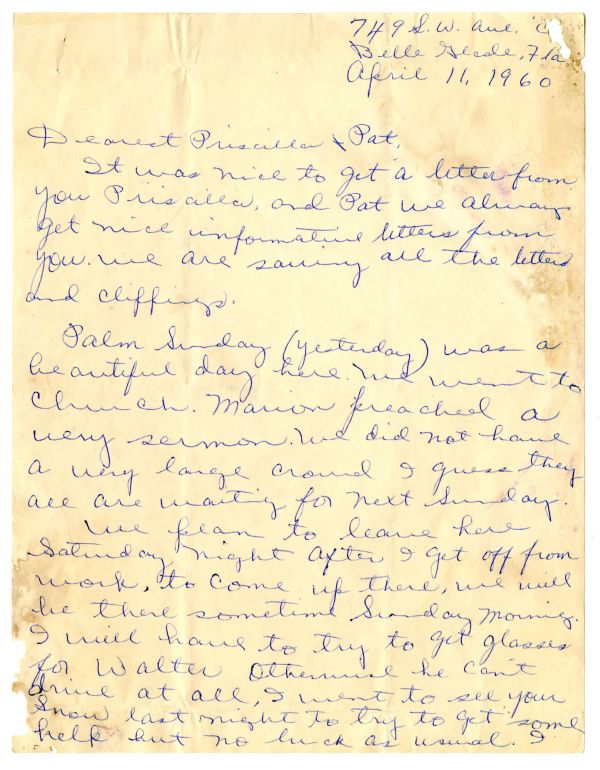 749 S. W. Ave. "C
Belle Glade, Fla
April 11, 1960
Dearest Priscilla & Pat,
It was nice to get a letter from
you Priscilla, and Pat we always
get nice informative letters from
you. We are saving all the letters
and cliffings.
Palm Sunday (yesterday) was a
beautiful day here. We went to
Church. Marion preached a
very sermon. We did not have
a very large crowd I guess they
all are waitig for next Sunday.
We plan to leave here
Saturday night after I get off from
work, to come up there, we will
be there sometime Sunday morning.
I will have to try to get glasses
for Walter Otherwise he can't
drive at all, I went to see your
last night to try to get some
help but no luck as usual. I